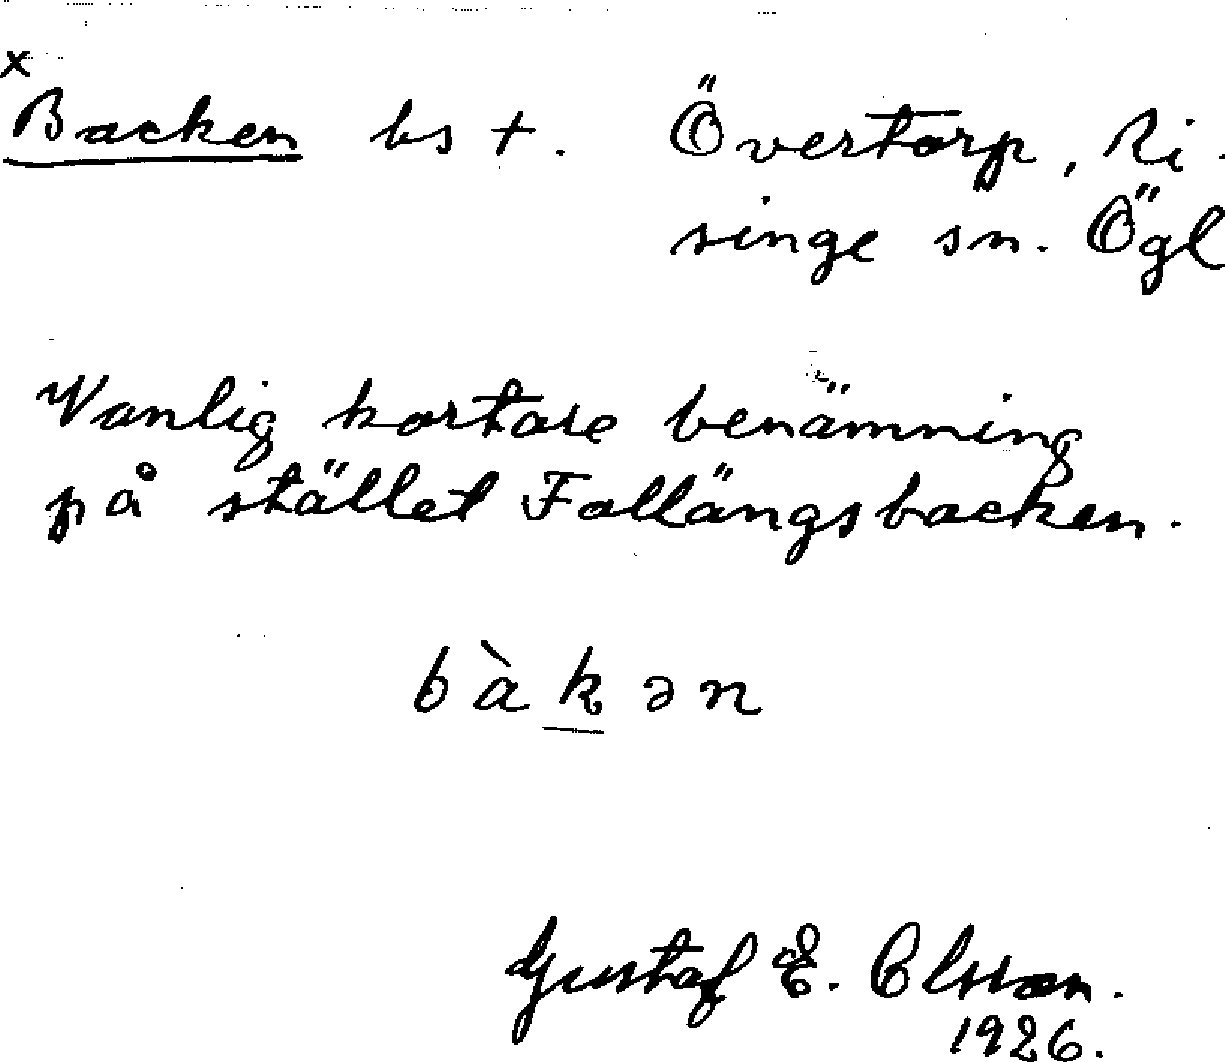 x
Backen bs t. Övertorp, Ri-
singe sn. Ögl
Vanlig kortare benämning
på stället Fallängsbacken.
bàkən
Gustaf E. Olsson.
1926.